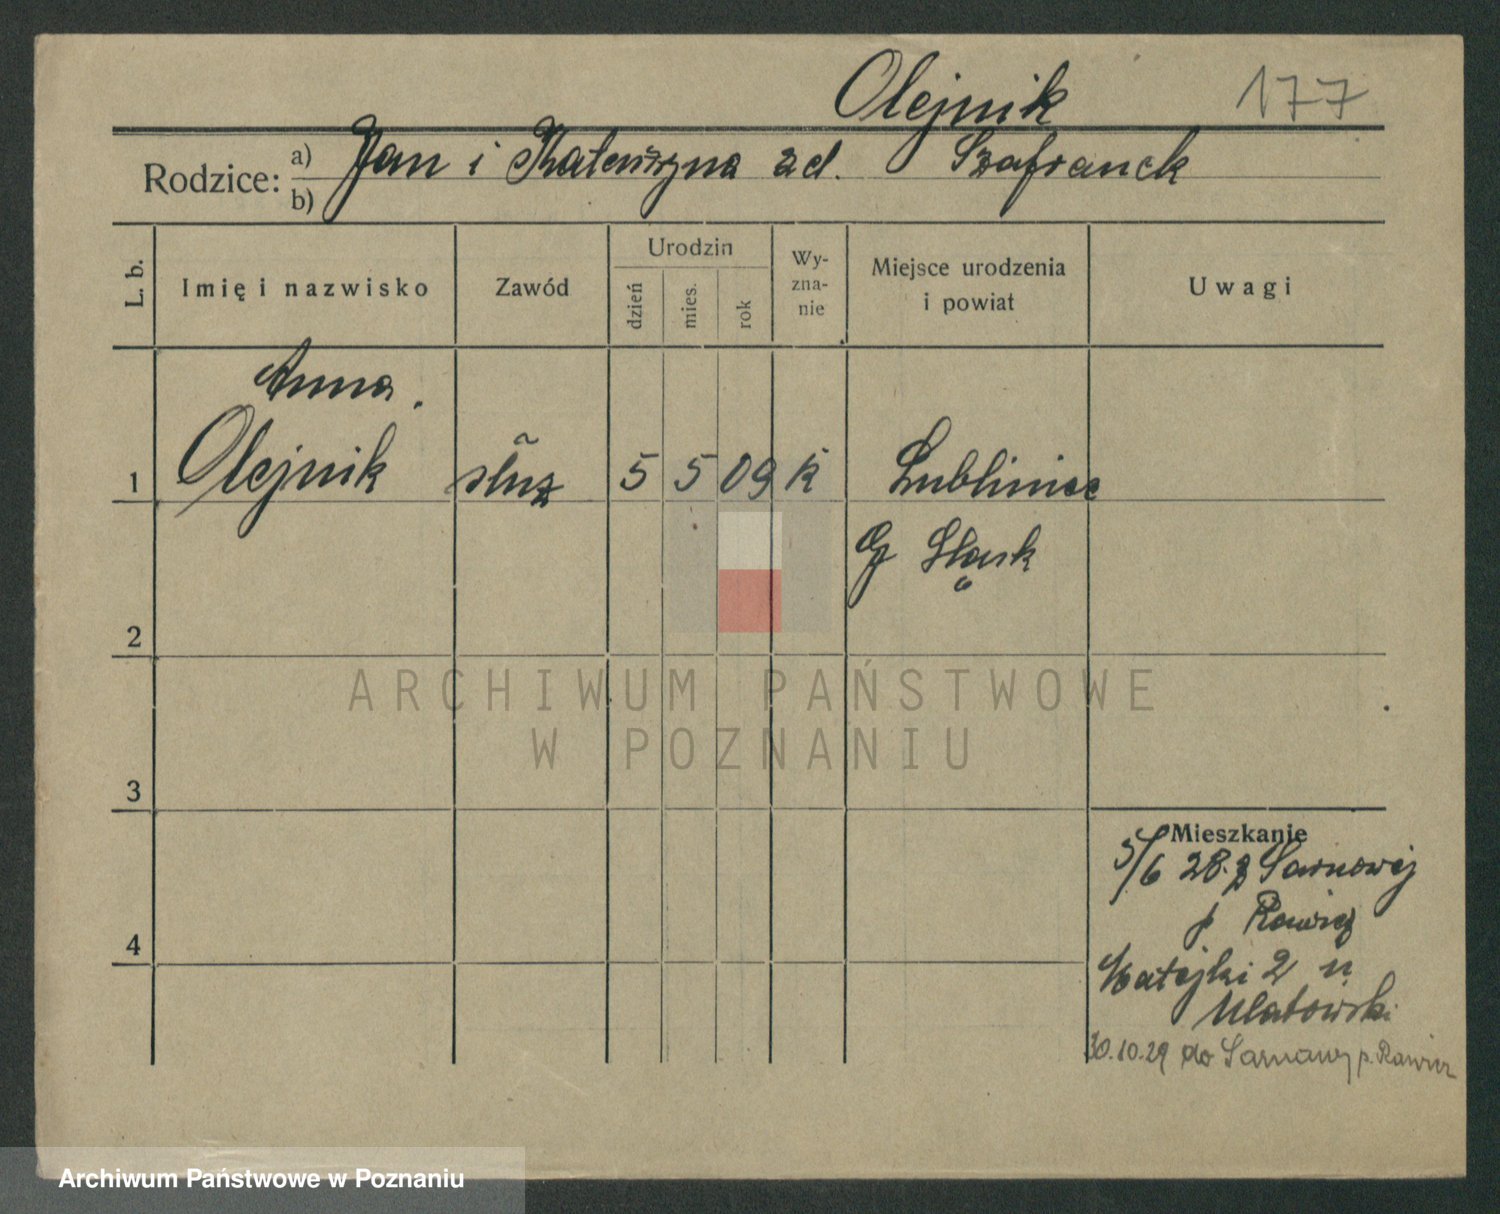 Olejnik 177
Rodzice: a) Jan i Katarzyna zd. Szafranek
b)
L. b. Imię i nazwisko Zawód Urodzin dzień mies. rok Wy-zna-nie Miejsce urodzenia i powiat Uwagi
Anna
1 Olejnik służ 5 5 09 k Lubliniec
G Śląsk
2
3
Mieszkanie
5/6 28. z Sarnowej
p Rawicz
4
Matejki 2 u
Ulatowski
30.10.29 do Sarnowy p. Rawicz
ARCHIWUM PAŃSTWOWE
W POZNANIU
Archiwum Państwowe w Poznaniu